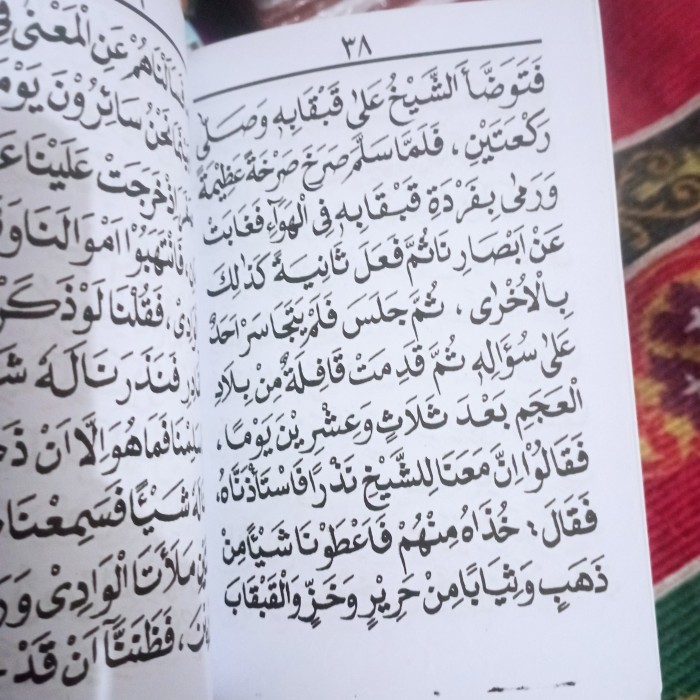 ٣٨
فَتَوَضَّأَ الشَّيْخُ عَلٰى قَبْقَابِهٖ وَصَلّٰى
رَكْعَتَيْنِ ، فَلَمَّا سَلَّمَ صَرَخَ صَرْخَةً عَظِيْمَةً
وَرَمٰى بِفَرْدَةِ قَبْقَابِهٖ فِى الْهَوَآءِ فَغَابَتْ
عَنْ اَبْصَارِنَا ثُمَّ فَعَلَ ثَانِيَةً كَذٰلِكَ
بِالْاُخْرٰى ، ثُمَّ جَلَسَ فَلَمْ يَتَجَاسَرْ اَحَدٌ
عَلٰى سُؤَالِهٖ ثُمَّ قَدِمَتْ قَافِلَةٌ مِنْ بِلَادِ
الْعَجَمِ بَعْدَ ثَلَاثٍ وَعِشْرِيْنَ يَوْمًا ،
فَقَالُوْا اِنَّ مَعَنَا لِلشَّيْخِ نَذْرًا فَاسْتَأْذَنَّاهُ،
فَقَالَ : خُذَاهُ مِنْهُمْ فَاَعْطَوْنَا شَيْئًا مِنْ
ذَهَبٍ وَثِيَابًا مِنْ حَرِيْرٍ وَخَزٍّ وَالْقَبْقَابَ
عَنِ الْمَعْنٰى فِى
نَحْنُ سَائِرُوْنَ يَوْمَ
اِذْ خَرَجَتْ عَلَيْنَا
فَانْتَهَبُوْا اَمْوَالَنَا
، فَقُلْنَا لَوْ ذَكَرْ
فَنَذَرْنَا لَهٗ
فَمَا هُوَ اِلَّا اَنْ
شَيْئًا فَسَمِعْنَا
مَلَأَتَا الْوَادِىْ
، فَظَنَنَّآ اَنْ قَدْ